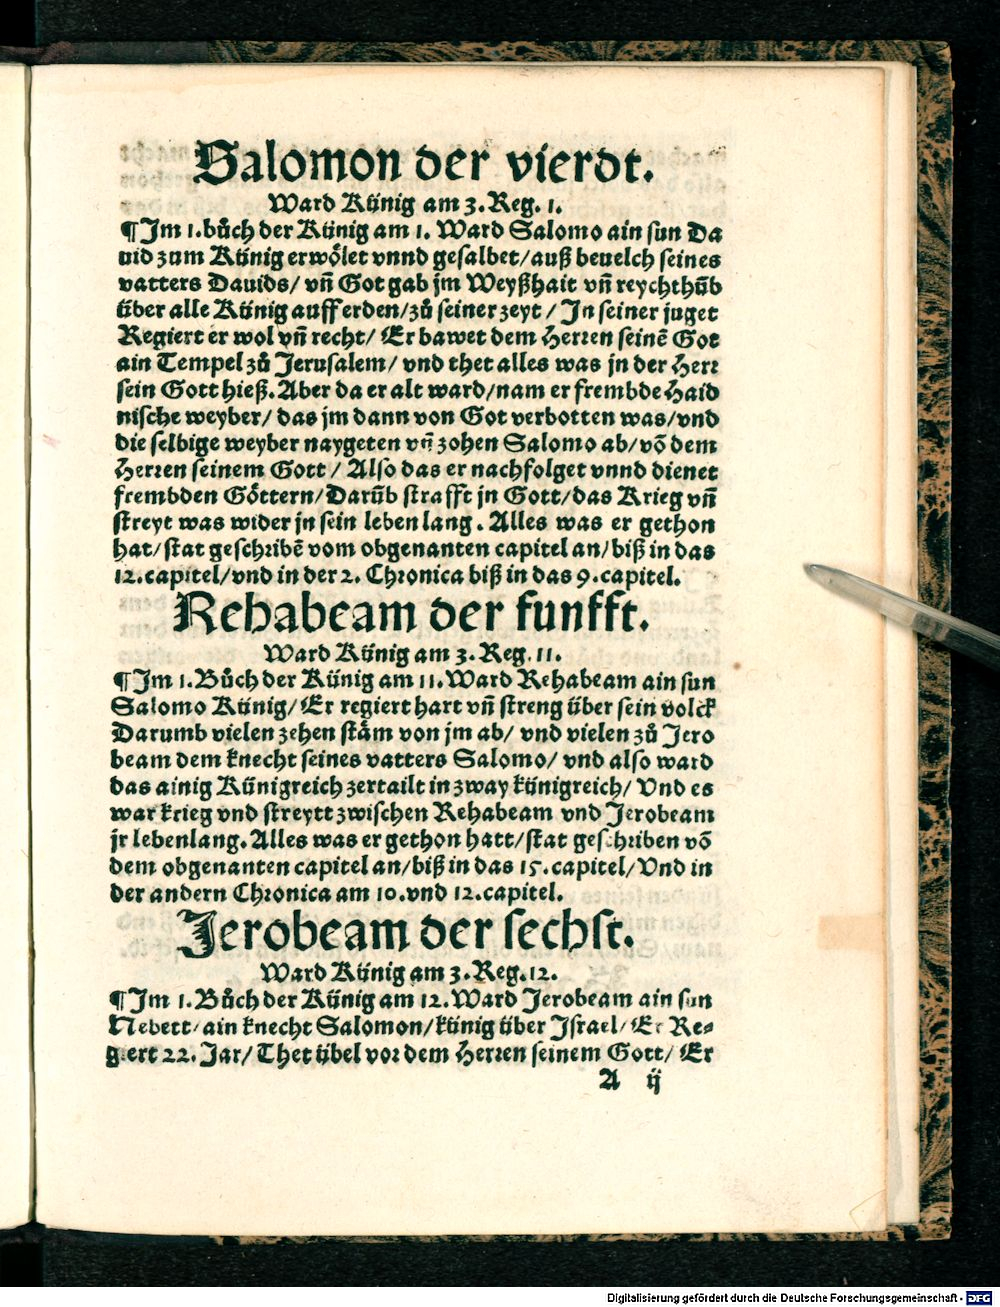 Salomon der vierdt.
Ward Künig am 3. Reg. 1.
¶Im 1. bůch der Künig am 1. Ward Salomo ain sun Da
uid zum Künig erwölet vnnd gesalbet/ auß beuelch seines
vatters Dauids/ vñ Got gab jm Weyßhait vñ reychthũb
über alle Künig auff erden/ zů seiner zeyt / In seiner juget
Regiert er wol vñ recht/ Er bawet dem Herren seinẽ Got
ain Tempel zů Jerusalem/ vnd thet alles was jn der Herr
sein Gott hieß. Aber da er alt ward/ nam er frembde Haid
nische weyber/ das jm dann von Got verbotten was/ vnd
die selbige weyber naygeten vñ zohen Salomo ab/ võ dem
Herren seinem Gott / Also das er nachfolget vnnd dienet
frembden Göttern/ Darũb strafft jn Gott/ das Krieg vñ
streyt was wider jn sein leben lang. Alles was er gethon
hat/ stat geschribẽ vom obgenanten capitel an/ biß in das
12. capitel/ vnd in der 2. Chronica biß in das 9. capitel.
Rehabeam der funfft.
Ward Künig am 3. Reg. 11.
¶Im 1. Bůch der Künig am 11. Ward Rehabeam ain sun
Salomo Künig/ Er regiert hart vñ streng über sein volck
Darumb vielen zehen stäm von jm ab/ vnd vielen zů Jero
beam dem knecht seines vatters Salomo/ vnd also ward
das ainig Künigreich zertailt in zway künigreich/ Vnd es
war krieg vnd streytt zwischen Rehabeam vnd Jerobeam
jr lebenlang. Alles was er gethon hatt/ stat geschriben võ
dem obgenanten capitel an/ biß in das 15. capitel/ Vnd in
der andern Chronica am 10. vnd 12. capitel.
Jerobeam der sechst.
Ward Künig am 3. Reg. 12.
¶Im 1. Bůch der Künig am 12. Ward Jerobeam ain sun
Nebett/ ain knecht Salomon/ künig über Israel/ Er Re=
giert 22. Jar/ Thet übel vor dem Herren seinem Gott/ Er
A ij
Digitalisierung gefördert durch die Deutsche Forschungsgemeinschaft - DFG